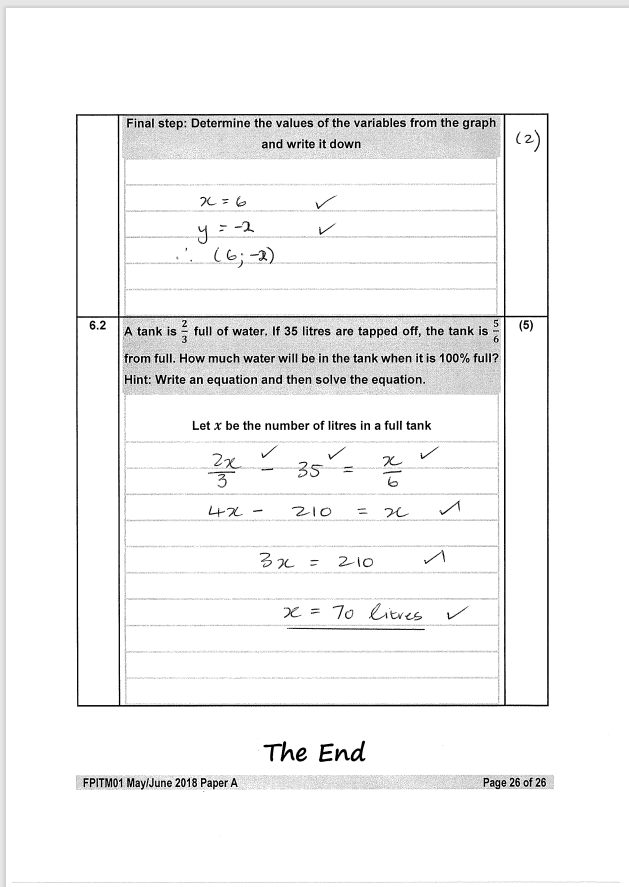 Final step: Determine the values of the variables from the graph
and write it down
(2)
x = 6 ✓
y = -2 ✓
∴ (6; -2)
6.2
A tank is 2/3 full of water. If 35 litres are tapped off, the tank is 5/6
from full. How much water will be in the tank when it is 100% full?
Hint: Write an equation and then solve the equation.
(5)
Let x be the number of litres in a full tank
2x/3 ✓ - 35 ✓ = x/6 ✓
4x - 210 = x ✓
3x = 210 ✓
x = 70 litres ✓
The End
FPITM01 May/June 2018 Paper A
Page 26 of 26